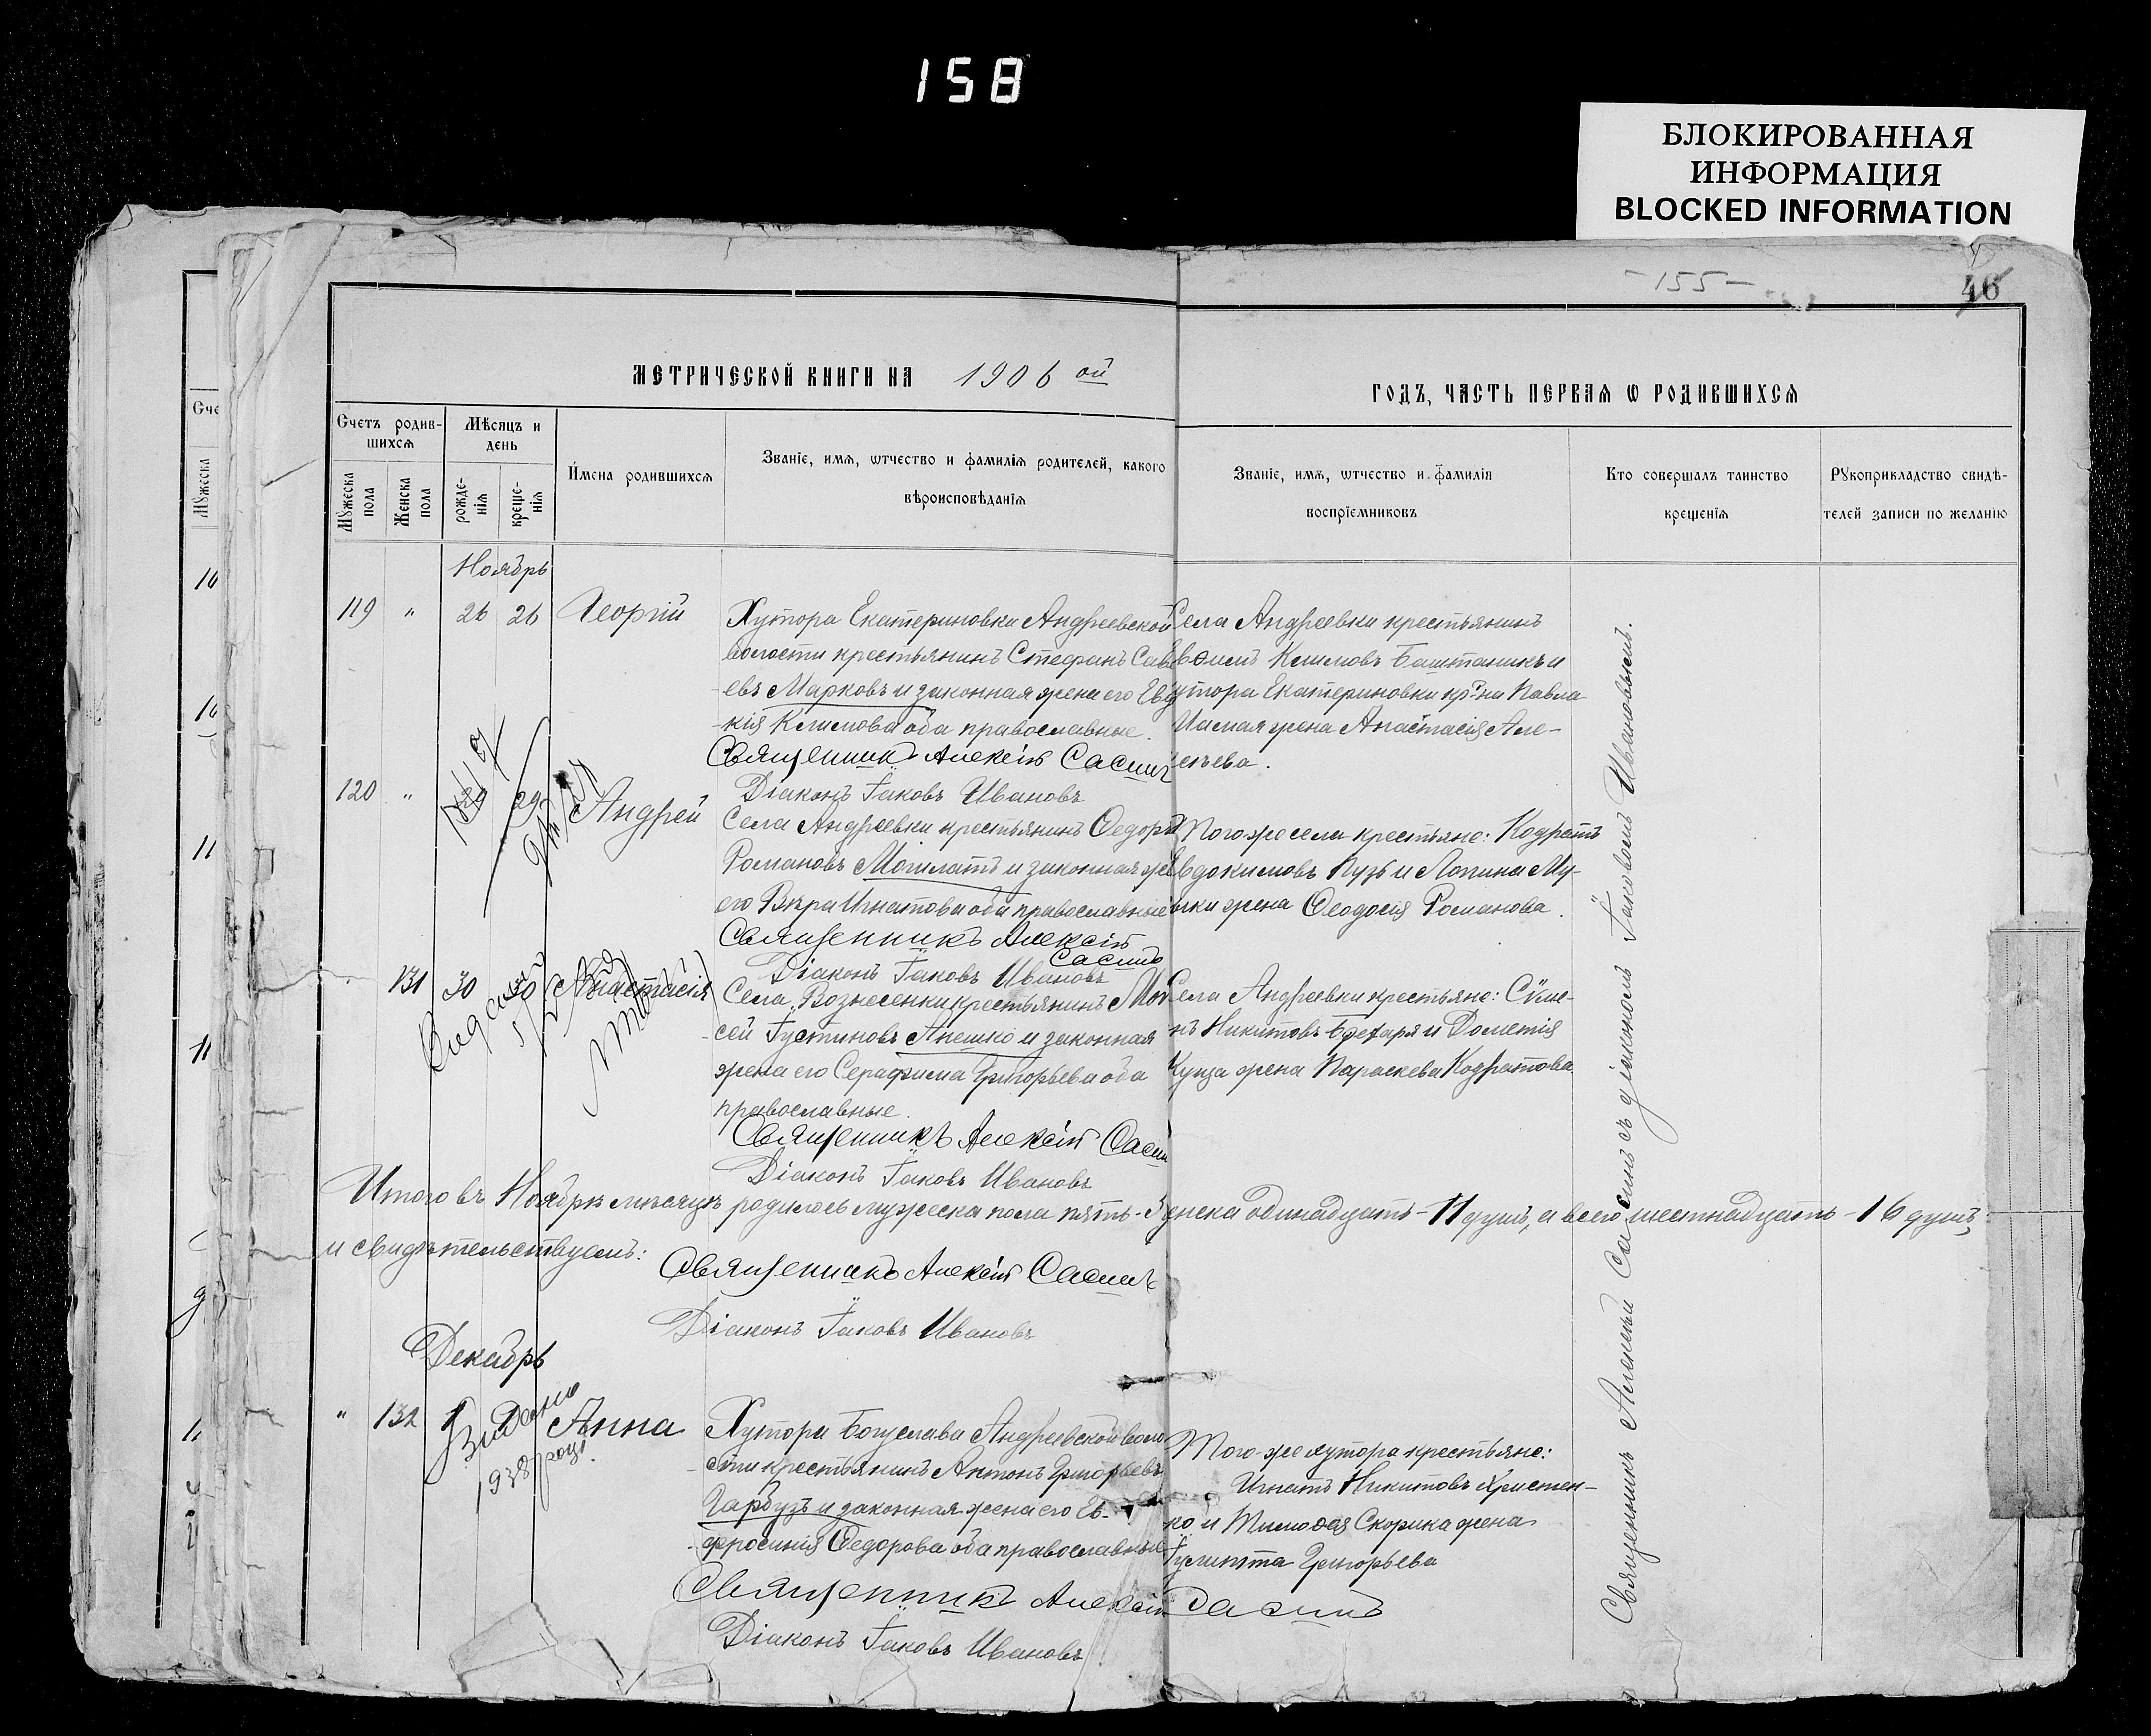 158
БЛОКИРОВАННАЯ
ИНФОРМАЦИЯ
BLOCKED INFORMATION
-155-
46
МЕТРИЧЕСКОЙ КНИГИ НА 1906 ой
ГОДЪ, ЧАСТЬ ПЕРВАЯ Ѡ РОДИВШИХСЯ
Счетъ родив-
шихся
Мѣсяцъ и
день
Мужеска
пола
Женска
пола
рожде-
нія
креще-
нія
Имена родившихся
Званіе, имя, ѡтчество и фамилія родителей, какого
вѣроисповѣданія
Званіе, имя, ѡтчество и фамилія
воспріемниковъ
Кто совершалъ таинство
крещенія
Рукоприкладство свидѣ-
телей записи по желанію
Ноябрь
119 " 26 26 Георгій
Хутора Екатериновки Андреевской
волости крестьянинъ Стефанъ Савв
евъ Марковъ и законная жена его Евд
-кія Климова оба православные.
Священникъ Алексій Сасинъ
Діаконъ Іаковъ Ивановъ
Села Андреевки крестьянинъ
Климовъ Баштаникъ и
хутора Екатериновки кр-на Павла
жена Анастасія Але-
120 " 29 Андрей
Села Андреевки крестьянинъ Ѳедоръ
Романовъ Могилатъ и законная же
его Вѣра Игнатова оба православные
Священникъ Алексій
Сасинъ
Діаконъ Іаковъ Ивановъ
Того-же села крестьяне: Кодратъ
Евдокимовъ Пузь и Логина Му-
жена Ѳеодосія Романова.
131 30 30 Анастасія
Села Вознесенки крестьянинъ Мои
сей Іустиновъ Анешко и законная
жена его Серафима Григорьева оба
православные.
Священникъ Алексій Сасин
Діаконъ Іаковъ Ивановъ
Села Андреевки крестьяне: Сѵме-
нъ Никитовъ и Дометія
Куцза жена Параскева Кодратова
Итого въ Ноябрѣ мѣсяцѣ родилось мужеска пола пять - 5 женска одинадцать - 11 душъ, а всего шестнадцать - 16 душъ,
и свидѣтельствуемъ:
Священникъ Алексій Сасинъ
Діаконъ Іаковъ Ивановъ
Декабрь
" 132 1 Анна
Видано
1938 році
Хутора Богуслава Андреевской воло
сти крестьянинъ Антонъ Григорьевъ
Гарбузъ и законная жена его Ев-
-фросинія Ѳедорова оба православные
Священникъ Алексій Сасинъ
Діаконъ Іаковъ Ивановъ
Того-же хутора крестьяне:
Игнатъ Никитовъ Христен-
ко и Тимоѳея Скорика жена
Іулитта Григорьева
Священникъ Алексій Сасинъ съ діакономъ Іаковомъ Ивановымъ.